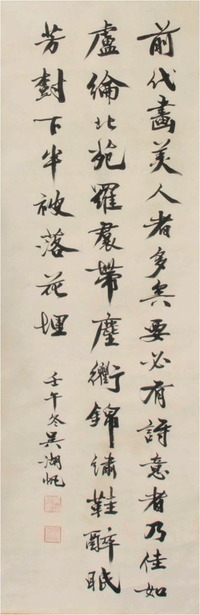 前代畫美人者多矣要必有詩意者乃佳如
盧綸北苑羅裙帶塵衢錦繡鞋醉眠
芳對下半被落花埋
壬午冬吳湖帆